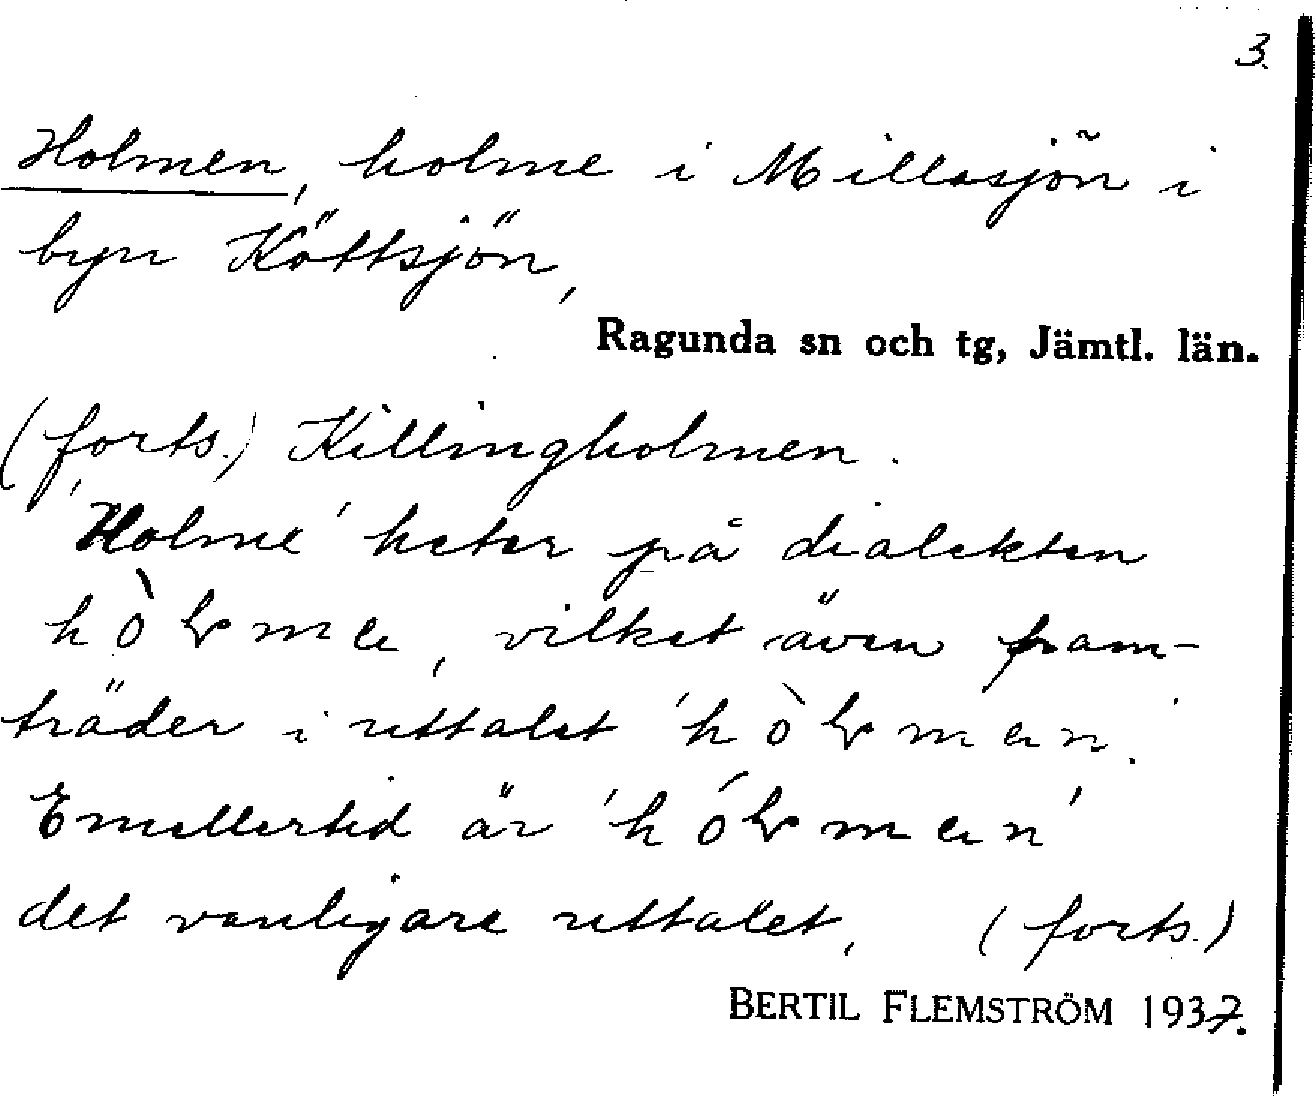 3.
Holmen, holme i Millasjön i
byn Köttsjön,
Ragunda sn och tg, Jämtl. län.
(forts.) Killingholmen.
'Holme' heter på dialekten
hòɫme, vilket även fram-
träder i uttalet 'hòɫmen'.
Emellertid är 'hóɫmen'
det vanligare uttalet, (forts.)
BERTIL FLEMSTRÖM 1937.